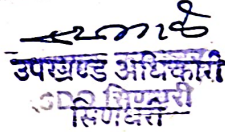 उपखण्ड अधिकारी
SDO सिणधरी
सिणधरी